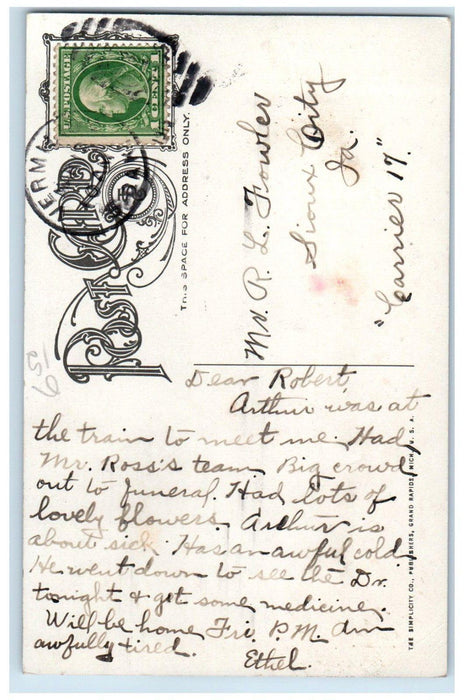 U.S. POSTAGE
1 CENT 1
POST CARD
THIS SPACE FOR ADDRESS ONLY.
Mr. R. L. Fowler
Sioux City
Ia.
"Carrier 17."
Dear Robert,
Arthur was at
the train to meet me. Had
Mr. Ross's team. Big crowd
out to funeral. Had lots of
lovely flowers. Arthur is
about sick. Has an awful cold.
He went down to see the Dr.
tonight & get some medicine.
Will be home Fri. P.M. Am
awfully tired.
Ethel.
THE SIMPLICITY CO., PUBLISHERS, GRAND RAPIDS, MICH., U. S. A.